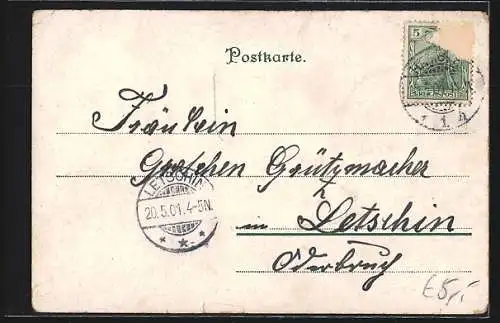 5
Postkarte.
Fräulein
Gretchen Grützmacher
LETSCHIN
20.5.01.4-5N.
in Letschin
Oderbruch
€5,-